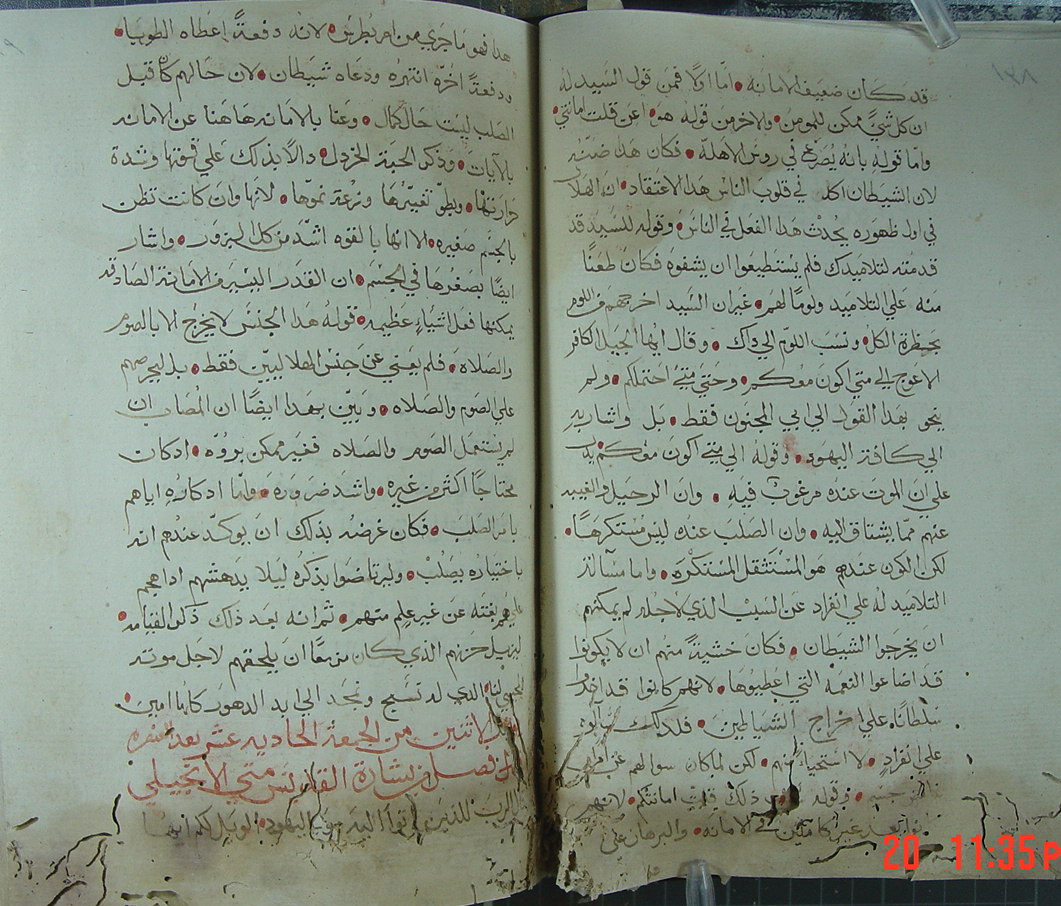 قد كان ضعيف الامانه • اما اولا فمن قول السيد له
ان كل شي ممكن للمومن • والاخر من قوله هو • اعن قلت امانتي •
واما قوله بانه يُصرع في روس الاهلة • فكان هذا
لان الشيطان اكل في قلوب الناس هدا الاعتقاد • ان الهلال
في اول ظهوره يُحدث هدا الفعل في الناس • وقوله للسيد قد
قدمته لتلاميدك فلم يستطيعوا ان يشفوه فكان طعنًا
منه علي التلاميد ولومًا لهم • غير ان السيد اخرجهم من اللوم
بحظرة الكل • ونسب اللوم الي داك • وقال ايها الجيل الكافر
الاعوج الي متي اكون معكم • وحتي متي احتملكم • ولم
ينحو بهدا القول الي ابي المجنون فقط • بل واشار به
الي كافة اليهود • وقوله الي متي اكون معكم يدل
علي ان الموت عنده مرغوب فيه • وان الرحيل والغيبه
عنهم مما يشتاق اليه • وان الصلب عنده ليس مستكرهًا •
لكن الكون عندهم هو المستثقل المستكره • واما مسألة
التلاميد له علي انفراد عن السبب الدي لاجله لم يمكنهم
ان يخرجوا الشيطان • فكان خشيةً منهم ان لا يكونوا
قد اضاعوا النعمه التي اعطيوها • لانهم كانوا قد اخدوا
سلطانًا علي اخراج الشياطين • فلدلك سألوه
علي انفراد • لا استحياءً منهم • لكن لما كان سوالهم عن امر
وقوله ذلك قلت امانتكم • لانهم
بعد غير كاملين في الامانه • والبرهان علي
هدا فهو ما جري من امر بطرس • لانه دفعةً اعطاه الطوبا •
ودفعةً اخره انتهره ودعاه شيطان • لان حالهم كان قبل
الصلب ليست حال كمال • وعنا بالامانه هاهنا عن الامانه
بالآيات • وذكر الحبة الخردل • دالاً بذلك علي قوتها وشدة
حرارتها • وبطو تغيّرها وسرعة نموّها • لانها وان كانت تظن
بالجسم صغيره • الا انها بالقوه اشد من كل البزور • واشار
ايضًا بصغرها في الجسم • ان القدر اليسير من الامانة الصادقه
يمكنها فعل اشياءٍ عظيمه • قوله هدا الجنس لا يخرج الا بالصوم
والصلاه • فلم يعني عن جنس الهلاليين فقط • بل ليحرصهم
علي الصوم والصلاه • وبيّن بهدا ايضًا ان المصاب ان
لم يستعمل الصوم والصلاه فغير ممكن بروّه • ادكان
محتاجًا اكثر من غيره • واشد ضروره • واما ادكاره اياهم
بامر الصلب • فكان غرضه بدلك ان يوكدّ عندهم انه
باختياره يصلب • وليرتاضوا بذكره ليلا يدهشهم ادا هجم
عليهم بغته عن غير علم منهم • ثم انه بعد ذلك ذكر القيامه •
ليزيل حزنهم الذي كان مزمعًا ان يلحقهم لاجل موته
الدي له نسبح ونمجد الي ابد الدهور كلها امين •
الاثنين من الجمعة الحاديه عشر بعد العنصره
الفصل من بشارة القديس متي الانجيلي
قال الرب للدين اتوا اليه من اليهود • الويل لكم ايها